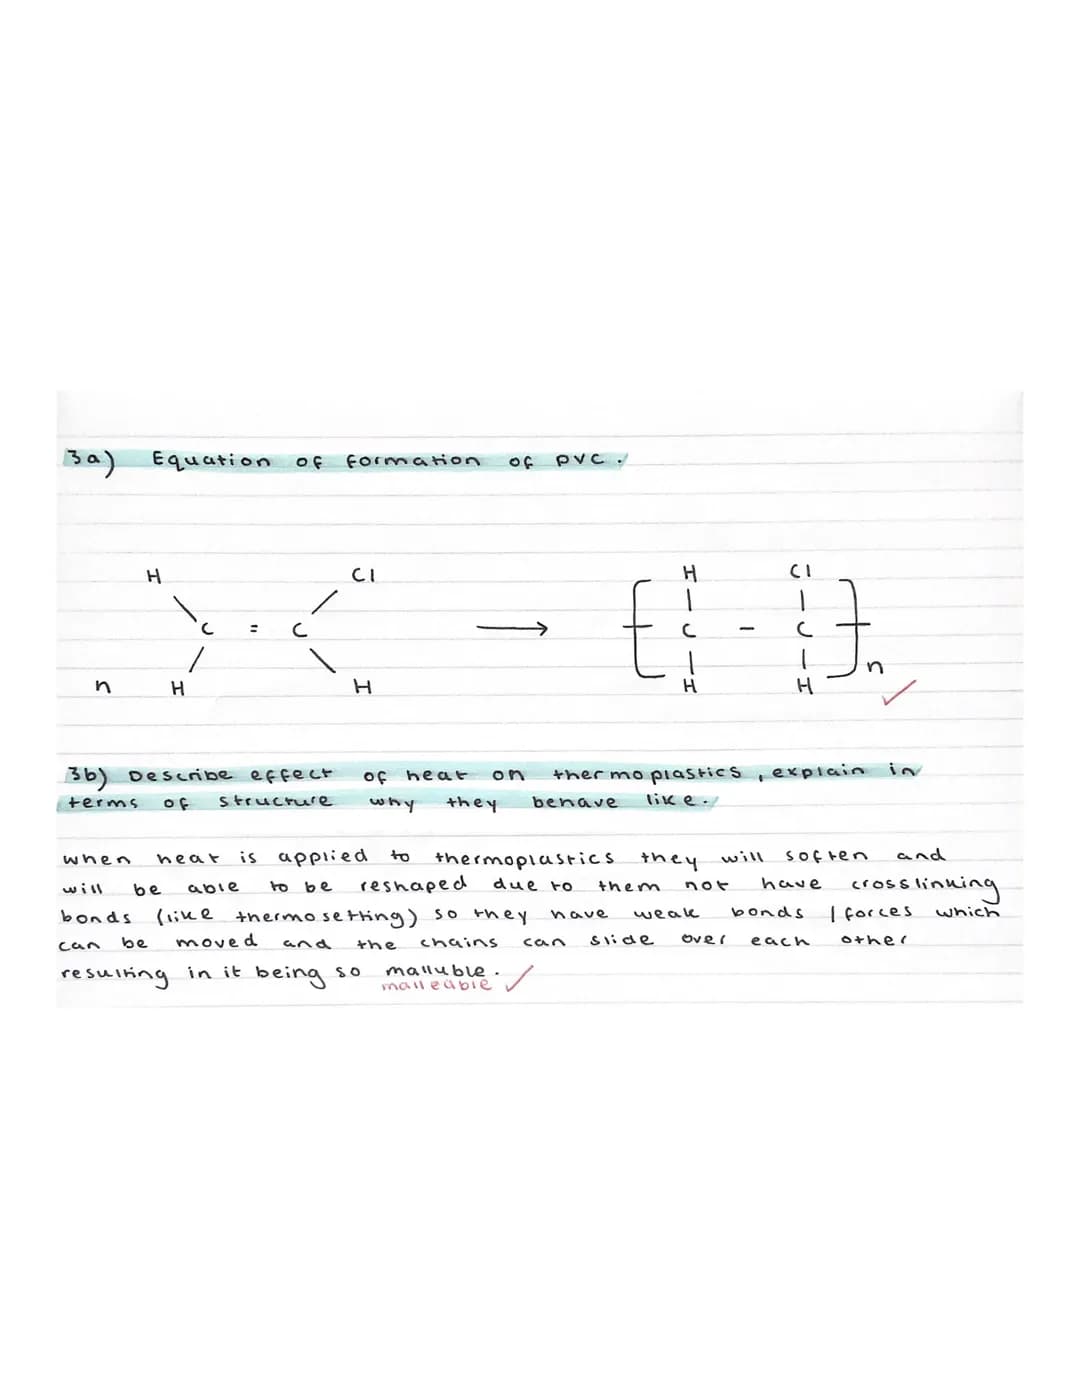 3a) Equation of formation of PVC.
H Cl H Cl
C = C → C - C
n H H H H n
3b) Describe effect of heat on thermoplastics, explain in
terms of structure why they behave like.
when heat is applied to thermoplastics they will soften and
will be able to be reshaped due to them not have crosslinking
bonds (like thermosetting) so they have weak bonds / forces which
can be moved and the chains can slide over each other
resulting in it being so malluble.
malleable